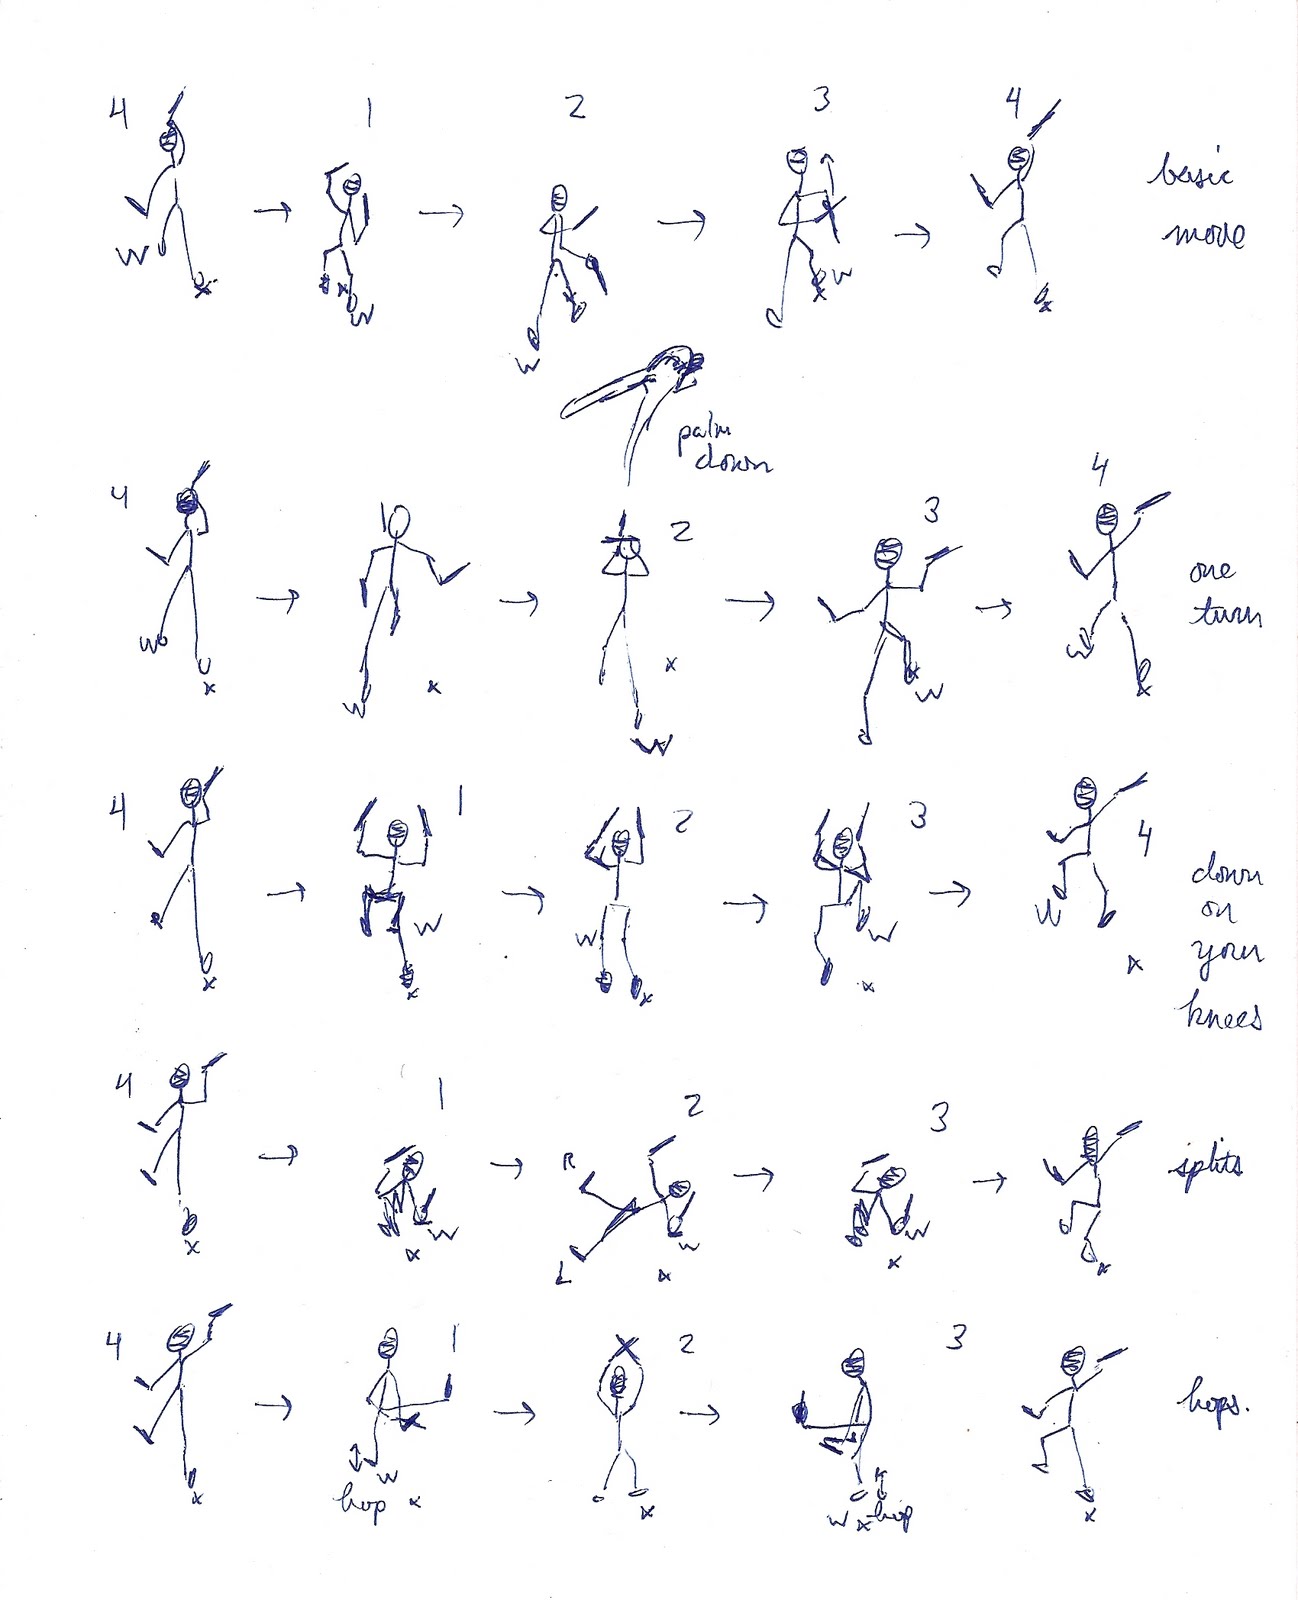 4 1 2 3 4 basic
move
W x W x W x W x x
palm
down
4 1 2 3 4 one
turn
W x W x x W x W W x
4 1 2 3 4 down
on
your
knees
x W x W x W x W x
4 1 2 3 splits
R
x x W L x W x W x
4 1 2 3 hops.
x hop W x x W x hop x